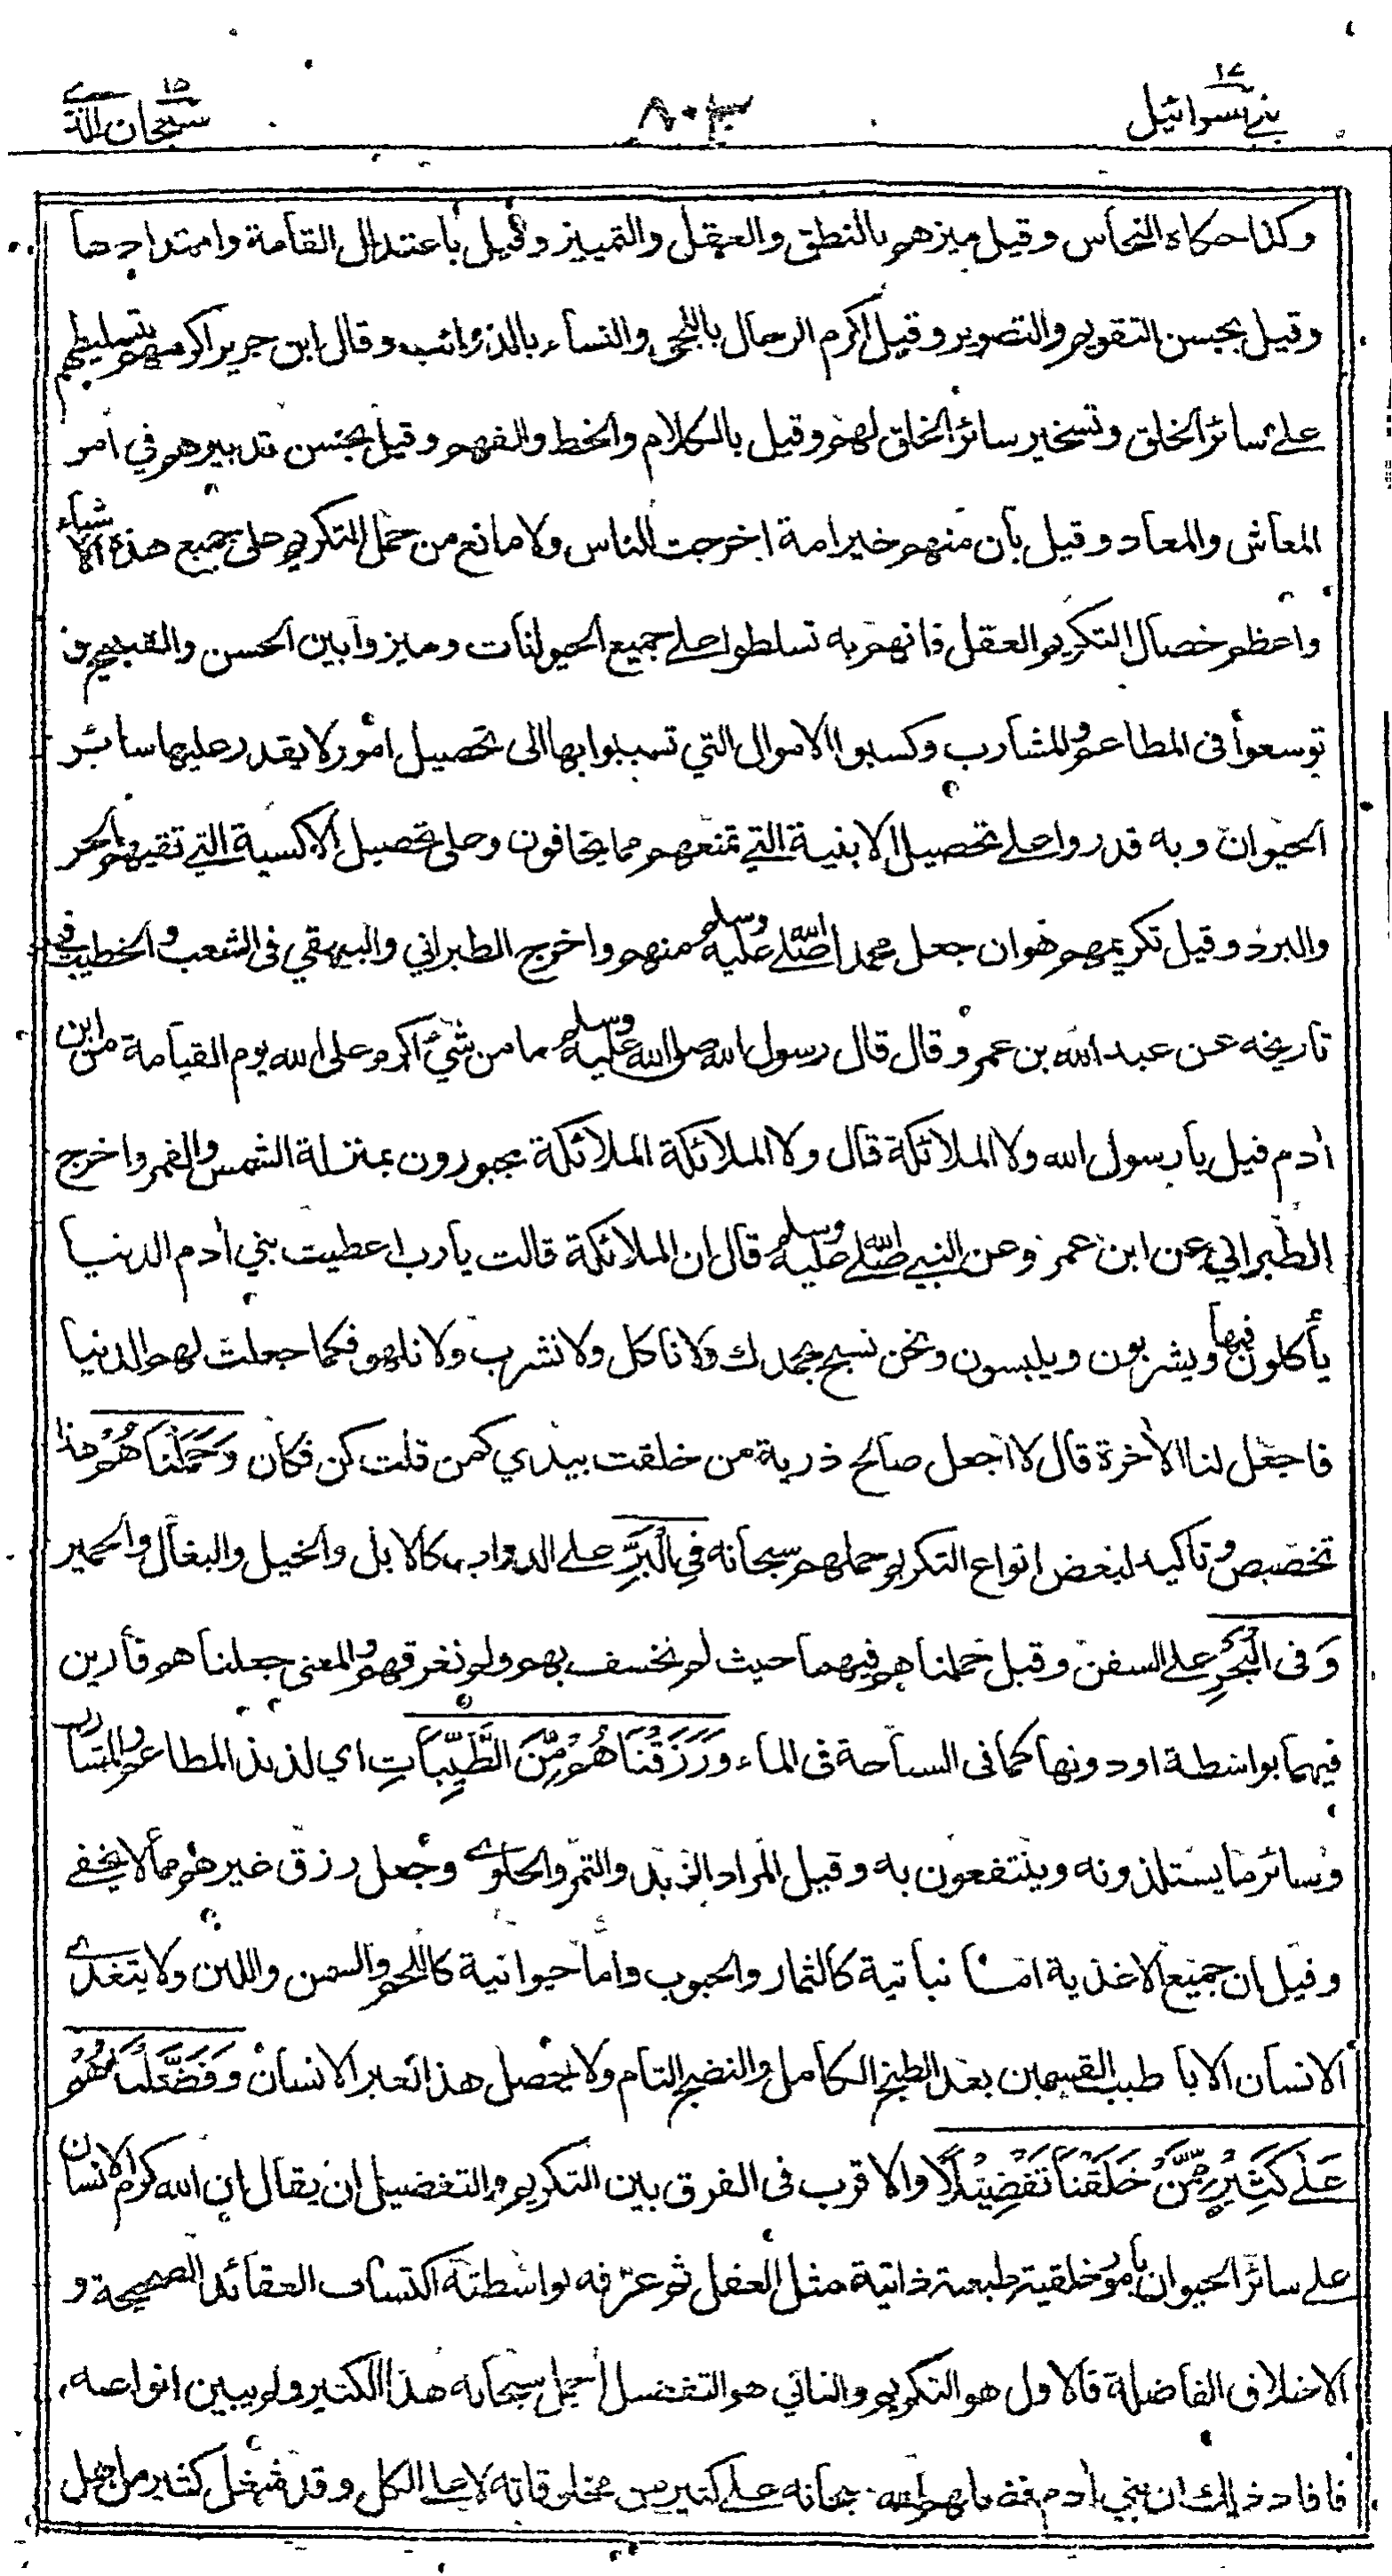 بني اسرائيل ١٧
٨٠٣
سبحان الذي ١٥
وكذا حكاه النحاس وقيل ميزهم بالنطق والعقل والتمييز وقيل باعتدال القامة وامتدادها
وقيل بحسن التقويم والتصوير وقيل اكرم الرجال باللحى والنساء بالذوائب وقال ابن جرير اكرمهم بتسليطهم
على سائر الخلق وتسخير سائر الخلق لهم وقيل بالكلام والخط والفهم وقيل بحسن تدبيرهم في امر
المعاش والمعاد وقيل بأن منهم خير امة اخرجت للناس ولا مانع من حمل التكريم على جميع هذه الاشياء
واعظم خصال التكريم العقل فانهم به تسلطوا على جميع الحيوانات وميزوا بين الحسن والقبيح و
توسعوا في المطاعم والمشارب وكسبوا الاموال التي تسببوا بها الى تحصيل امور لا يقدر عليها سائر
الحيوان وبه قدروا على تحصيل الابنية التي تمنعهم مما يخافون وعلى تحصيل الاكسية التي تقيهم الحر
والبرد وقيل تكريمهم هو ان جعل محمدا صلى الله عليه وسلم منهم واخرج الطبراني والبيهقي في الشعب والخطيب في
تاريخه عن عبد الله بن عمرو قال قال رسول الله صلى الله عليه وسلم ما من شيء اكرم على الله يوم القيامة من ابن
أدم قيل يا رسول الله ولا الملائكة قال ولا الملائكة الملائكة مجبورون بمنزلة الشمس والقمر واخرج
الطبراني عن ابن عمرو عن النبي صلى الله عليه وسلم قال ان الملائكة قالت يا رب اعطيت بني أدم الدنيا
يأكلون فيها ويشربون ويلبسون ونحن نسبح بحمدك ولا ناكل ولا نشرب ولا نلهو فكما جعلت لهم الدنيا
فاجعل لنا الأخرة قال لا اجعل صالح ذرية من خلقت بيدي كمن قلت كن فكان وَحَمَلْنَاهُمْ هذا
تخصيص وتاكيد لبعض انواع التكريم حملهم سبحانه فِي الْبَرِّ على الدواب كالابل والخيل والبغال والحمير
وَفى الْبَحْرِ على السفن وقيل حملناهم فيهما حيث لم نخسف بهم ولم نغرقهم والمعنى جعلناهم قارين
فيهما بواسطة او دونها كما في السباحة في الماء وَرَزَقْنَاهُمْ مِّنَ الطَّيِّبَاتِ اي لذيذ المطاعم والمشارب
وسائر ما يستلذونه وينتفعون به وقيل المراد الزبد والتمر والحلوى وجعل رزق غيرهم مما لا يخفى
وقيل ان جميع الاغذية اما نباتية كالثمار والحبوب واما حيوانية كاللحم والسمن واللبن ولا يتغذى
الانسان الا باطيب القسمين بعد الطبخ الكامل والنضج التام ولا يحصل هذا لغير الانسان وَفَضَّلْنَاهُمْ
عَلى كَثِيْرٍ مِّمَّنْ خَلَقْنَا تَفْضِيْلًا والاقرب في الفرق بين التكريم والتفضيل ان يقال ان الله كرم الانسان
على سائر الحيوان بامور خلقية طبعية ذاتية مثل العقل ثم عرفه بواسطته اكتساب العقائد الصحيحة و
الاخلاق الفاضلة فالاول هو التكريم والثاني هو التفضيل اجمل سبحانه هذا الكثير ولم يبين انواعه
فافاد ذلك ان بني أدم فضلهم الله سبحانه على كثير من مخلوقاته لا على الكل وقد شغل كثير من اهل